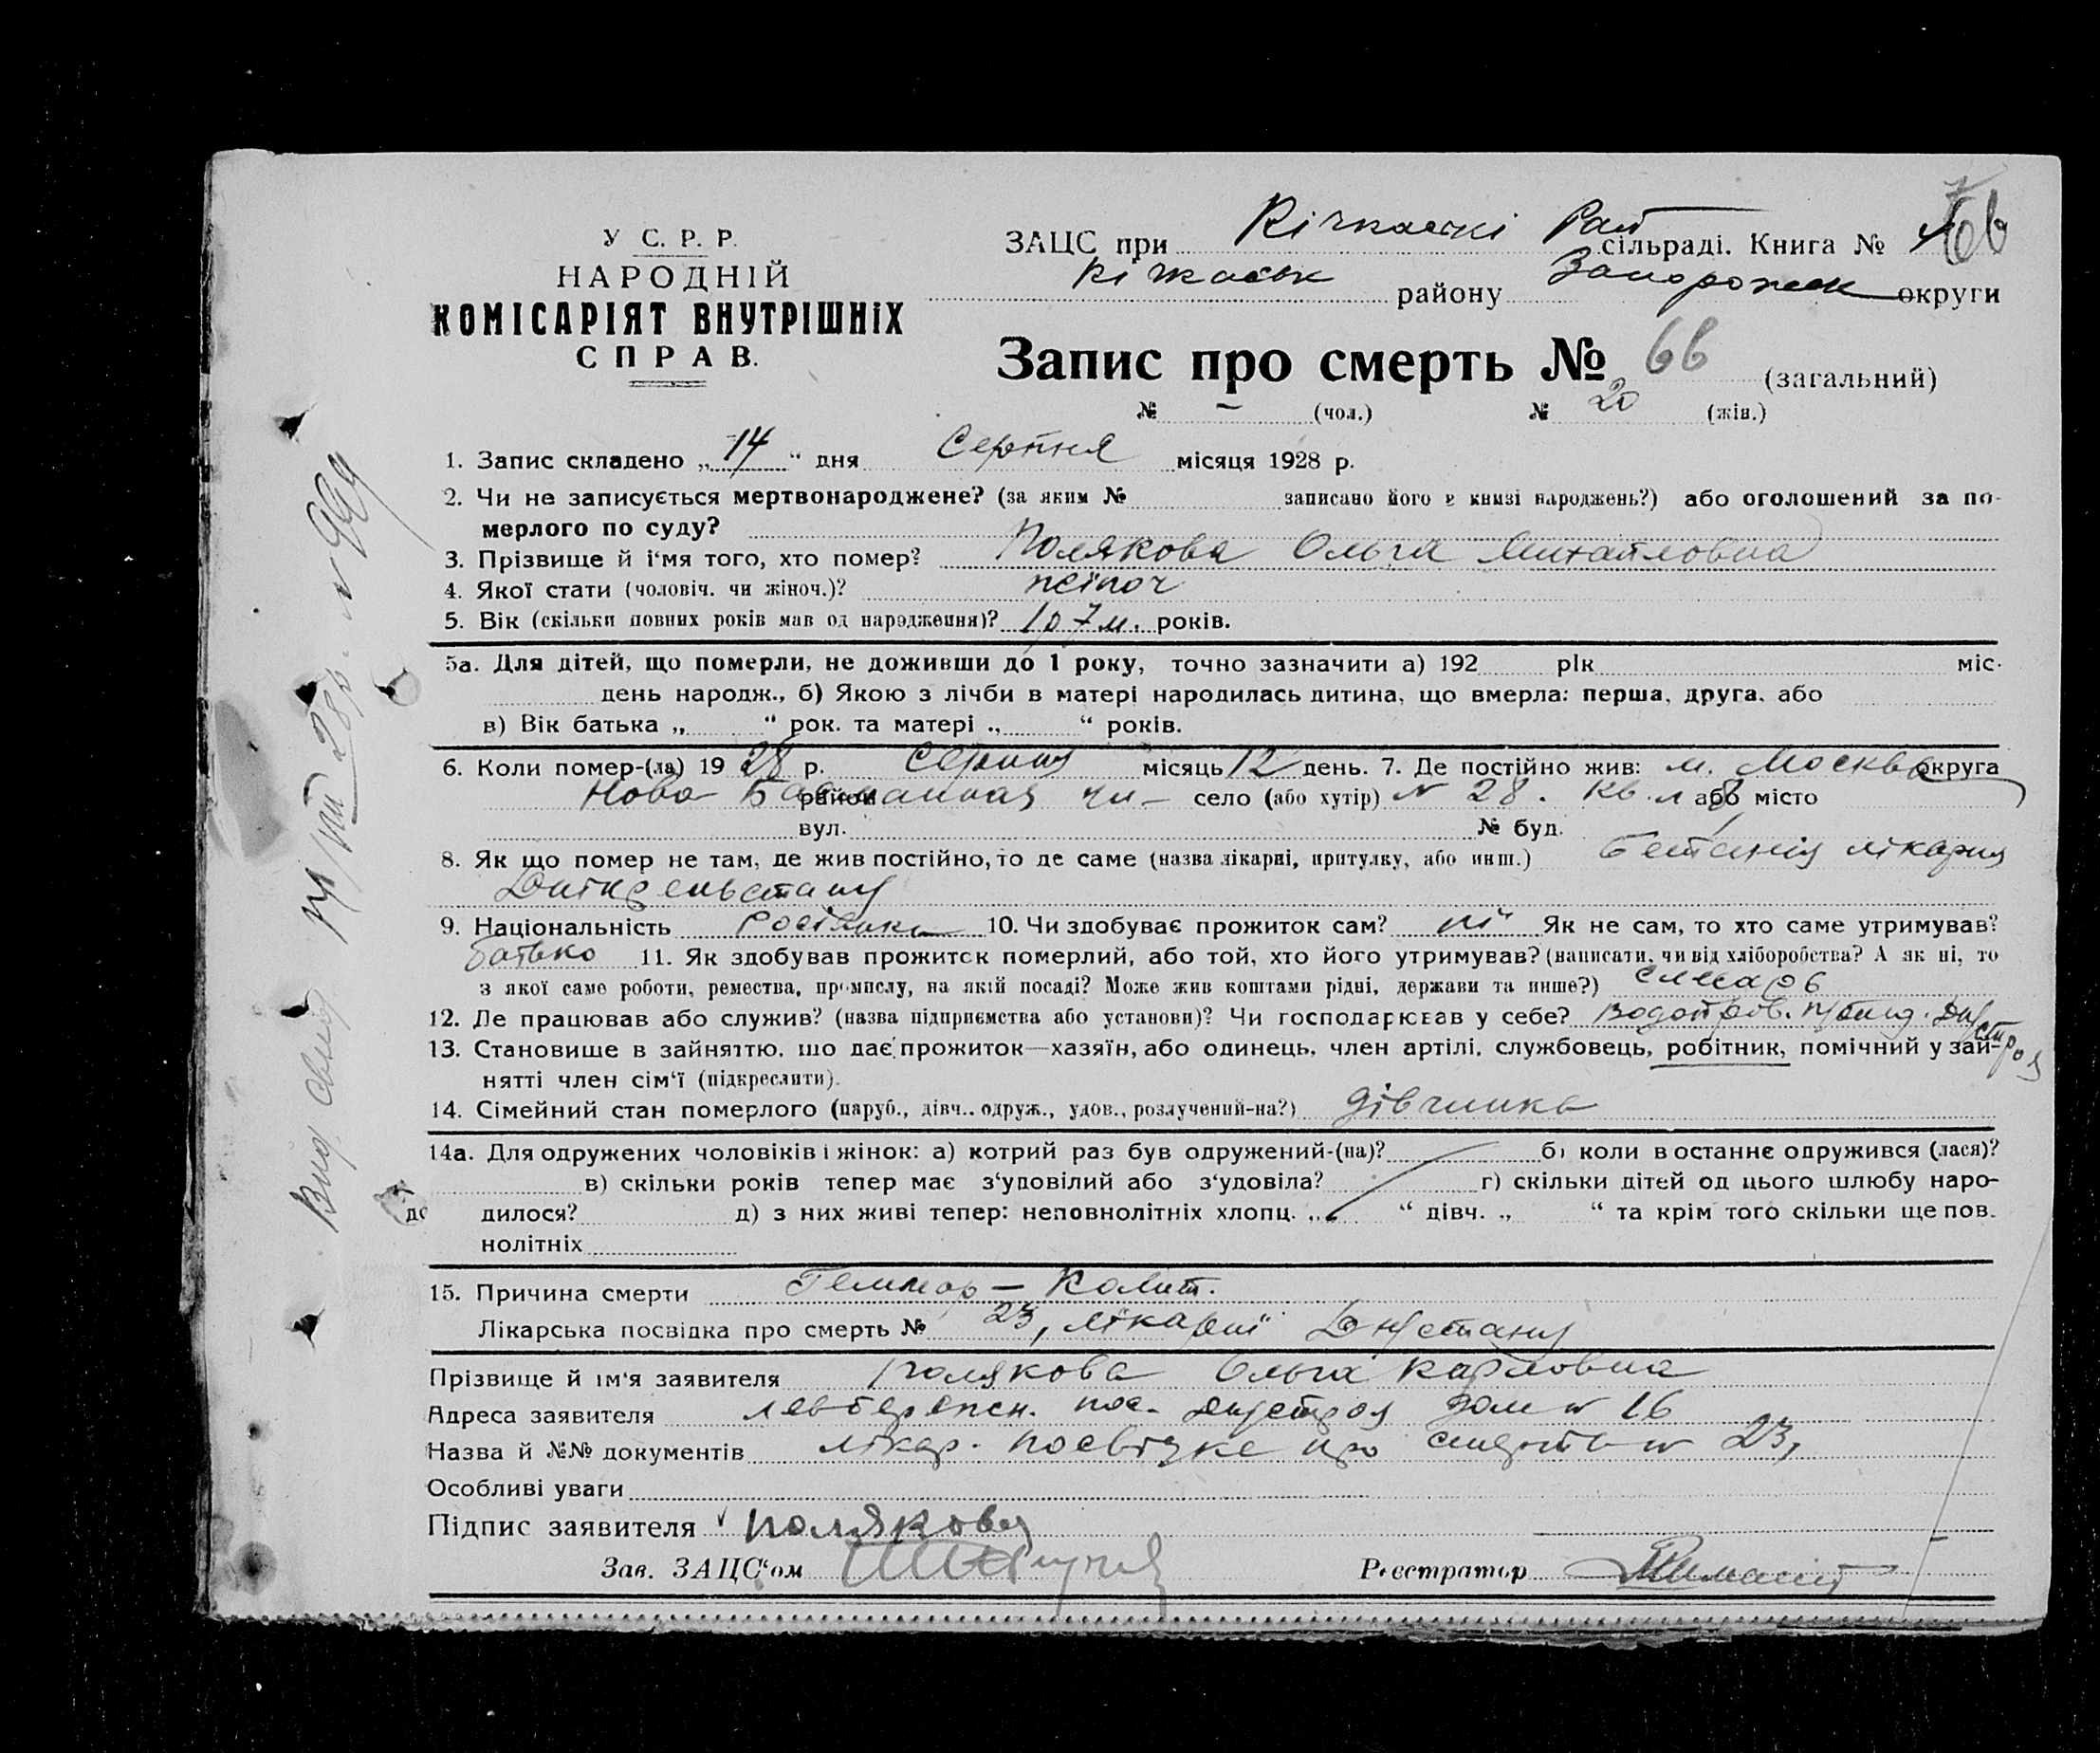 У С. Р. Р.
НАРОДНІЙ
КОМІСАРІЯТ ВНУТРІШНІХ
СПРАВ.
ЗАЦС при Кічкаські Рай сільраді. Книга №
Кічкаськ району Запорожск округи
Запис про смерть № 66 (загальний)
№ – (чол.) № 20 (жін.)
1. Запис складено „14“ дня Серпня місяця 1928 р.
2. Чи не записується мертвонароджене? (за яким № записано його в книзі народжень?) або оголошений за по-
мерлого по суду?
3. Прізвище й і‘мя того, хто помер? Полякова Ольга Михайловна
4. Якої стати (чоловіч. чи жіноч.)? жіноч
5. Вік (скільки повних років мав од народження)? 1 р 7 м. років.
5а. Для дітей, що померли, не доживши до 1 року, точно зазначити а) 192 рік міс.
день народж., б) Якою з лічби в матері народилась дитина, що вмерла: перша, друга, або
в) Вік батька „ “ рок. та матері „ “ років.
6. Коли помер-(ла) 1928 р. Серпня місяць 12 день. 7. Де постійно жив: м. Москва округа
Ново Басманная район село (або хутір) № 28. кв. або місто
вул. № буд.
8. Як що помер не там, де жив постійно, то де саме (назва лікарні, притулку, або инш.) лікарня
9. Національність Росіянка 10. Чи здобуває прожиток сам? ні Як не сам, то хто саме утримував?
батько 11. Як здобував прожиток померлий, або той, хто його утримував? (написати, чи від хліборобства? А як ні, то
з якої саме роботи, ремества, промислу, на якій посаді? Може жив коштами рідні, держави та инше?) слесарь
12. Де працював або служив? (назва підприємства або установи)? Чи господарював у себе?
13. Становище в зайнятті, що дає прожиток—хазяїн, або одинець, член артілі, службовець, робітник, помічний у зай-
нятті член сім‘ї (підкреслити).
14. Сімейний стан померлого (паруб., дівч., одруж., удов., розлучений-на?) дівчинка
14а. Для одружених чоловіків і жінок: а) котрий раз був одружений-(на)? б) коли востаннє одружився (лася)?
в) скільки років тепер має з‘уповілий або з‘удовіла? г) скільки дітей од цього шлюбу наро-
дилося? д) з них живі тепер: неповнолітніх хлопц. „ “ дівч. „ “ та крім того скільки ще пов.
нолітніх
15. Причина смерти Колит.
Лікарська посвідка про смерть № 23, лікарні
Прізвище й ім‘я заявителя Полякова Ольга Карловна
Адреса заявителя левобережн. пос. Дніпростроя дом № 16
Назва й №№ документів лікар. посвідка про смерть № 23,
Особливі уваги
Підпис заявителя Полякова
Зав. ЗАЦС‘ом Реєстратор